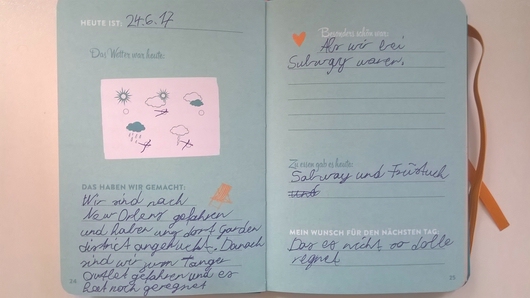 HEUTE IST: 24.6.17
Das Wetter war heute:
DAS HABEN WIR GEMACHT:
Wir sind nach
New Orlens gefahren
und haben uns dort Garden
district angekuckt. Danach
sind wir zum Tanger
Outlet gefahren und es
hat noch geregnet
24
Besonders schön war:
Als wir bei
Subway waren.
Zu essen gab es heute:
Subway und Früstuck
und
MEIN WUNSCH FÜR DEN NÄCHSTEN TAG:
Das es nicht so dolle
regnet
25